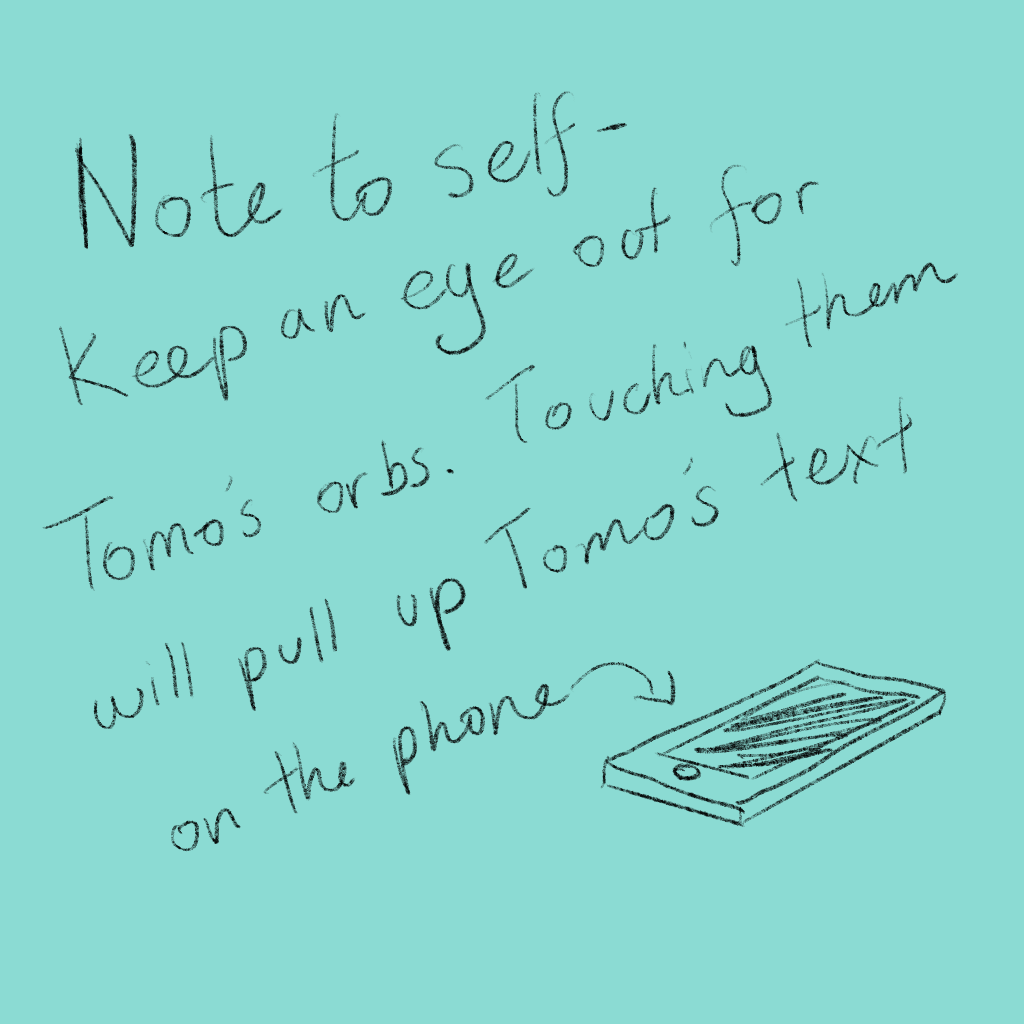 Note to self-
Keep an eye out for
Tomo's orbs. Touching them
will pull up Tomo's text
on the phone